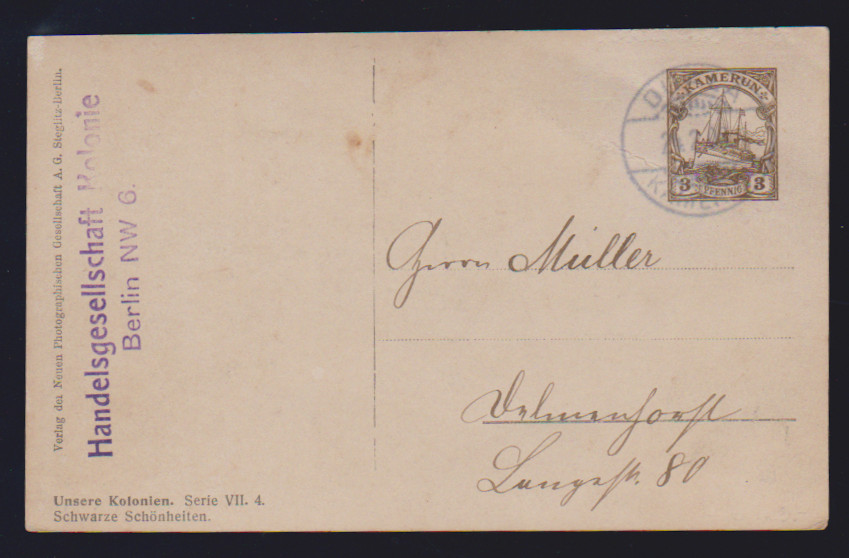 Verlag der Neuen Photographischen Gesellschaft A. G. Steglitz-Berlin.
Handelsgesellschaft Kolonie
Berlin NW 6.
Unsere Kolonien. Serie VII. 4.
Schwarze Schönheiten.
KAMERUN
3 PFENNIG 3
Herrn Müller
Delmenhorst
Langestr. 80